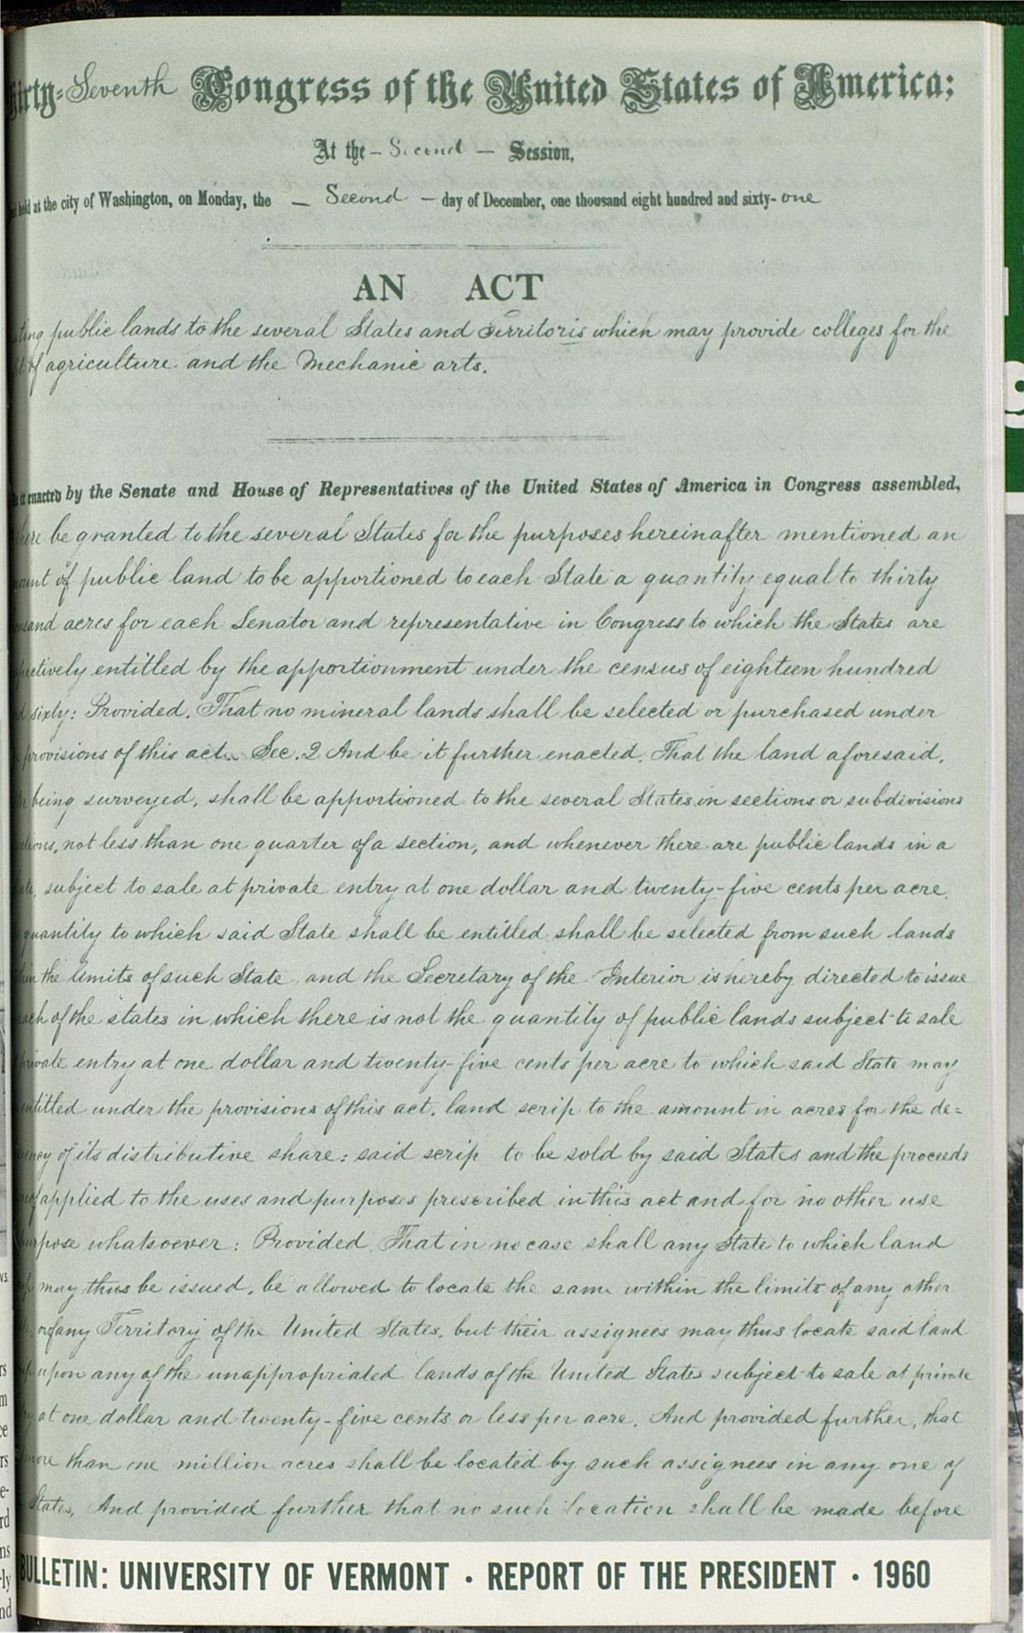 irty-Seventh Congress of the United States of America;
At the - Second - Session,
held at the city of Washington, on Monday, the - Second - day of December, one thousand eight hundred and sixty-one
AN ACT
ting public lands to the several States and Territoris which may provide colleges for the
of agriculture and the Mechanic arts.
it enacted by the Senate and House of Representatives of the United States of America in Congress assembled,
here be granted to the several States for the purposes hereinafter mentioned an
ount of public land to be apportioned to each State a quantity equal to thirty
and acres for each Senator and representative in Congress to which the States are
pectively entitled by the apportionment under the census of eighteen hundred
sixty: Provided, That no mineral lands shall be selected or purchased under
provisions of this act. Sec. 2 And be it further enacted, That the land aforesaid,
being surveyed, shall be apportioned to the several States in sections or subdivisions
tions, not less than one quarter of a section, and whenever there are public lands in a
subject to sale at private entry at one dollar and twenty-five cents per acre,
quantity to which said State shall be entitled shall be selected from such lands
the limits of such State, and the Secretary of the Interior is hereby directed to issue
of the states in which there is not the quantity of public lands subject to sale
private entry at one dollar and twenty-five cents per acre to which said State may
entitled under the provisions of this act, land scrip to the amount in acres for the de=
of its distributive share: said scrip to be sold by said States and the proceeds
applied to the uses and purposes prescribed in this act and for no other use
purpose whatsoever: Provided, That in no case shall any State to which land
may thus be issued, be allowed to locate the same within the limits of any other
or of any Territory of the United States, but their assignees may thus locate said land
upon any of the unappropriated lands of the United States subject to sale at private
at one dollar and twenty-five cents or less per acre. And provided further, that
more than one million acres shall be located by such assignees in any one of
States, And provided further that no such location shall be made before
BULLETIN: UNIVERSITY OF VERMONT · REPORT OF THE PRESIDENT · 1960